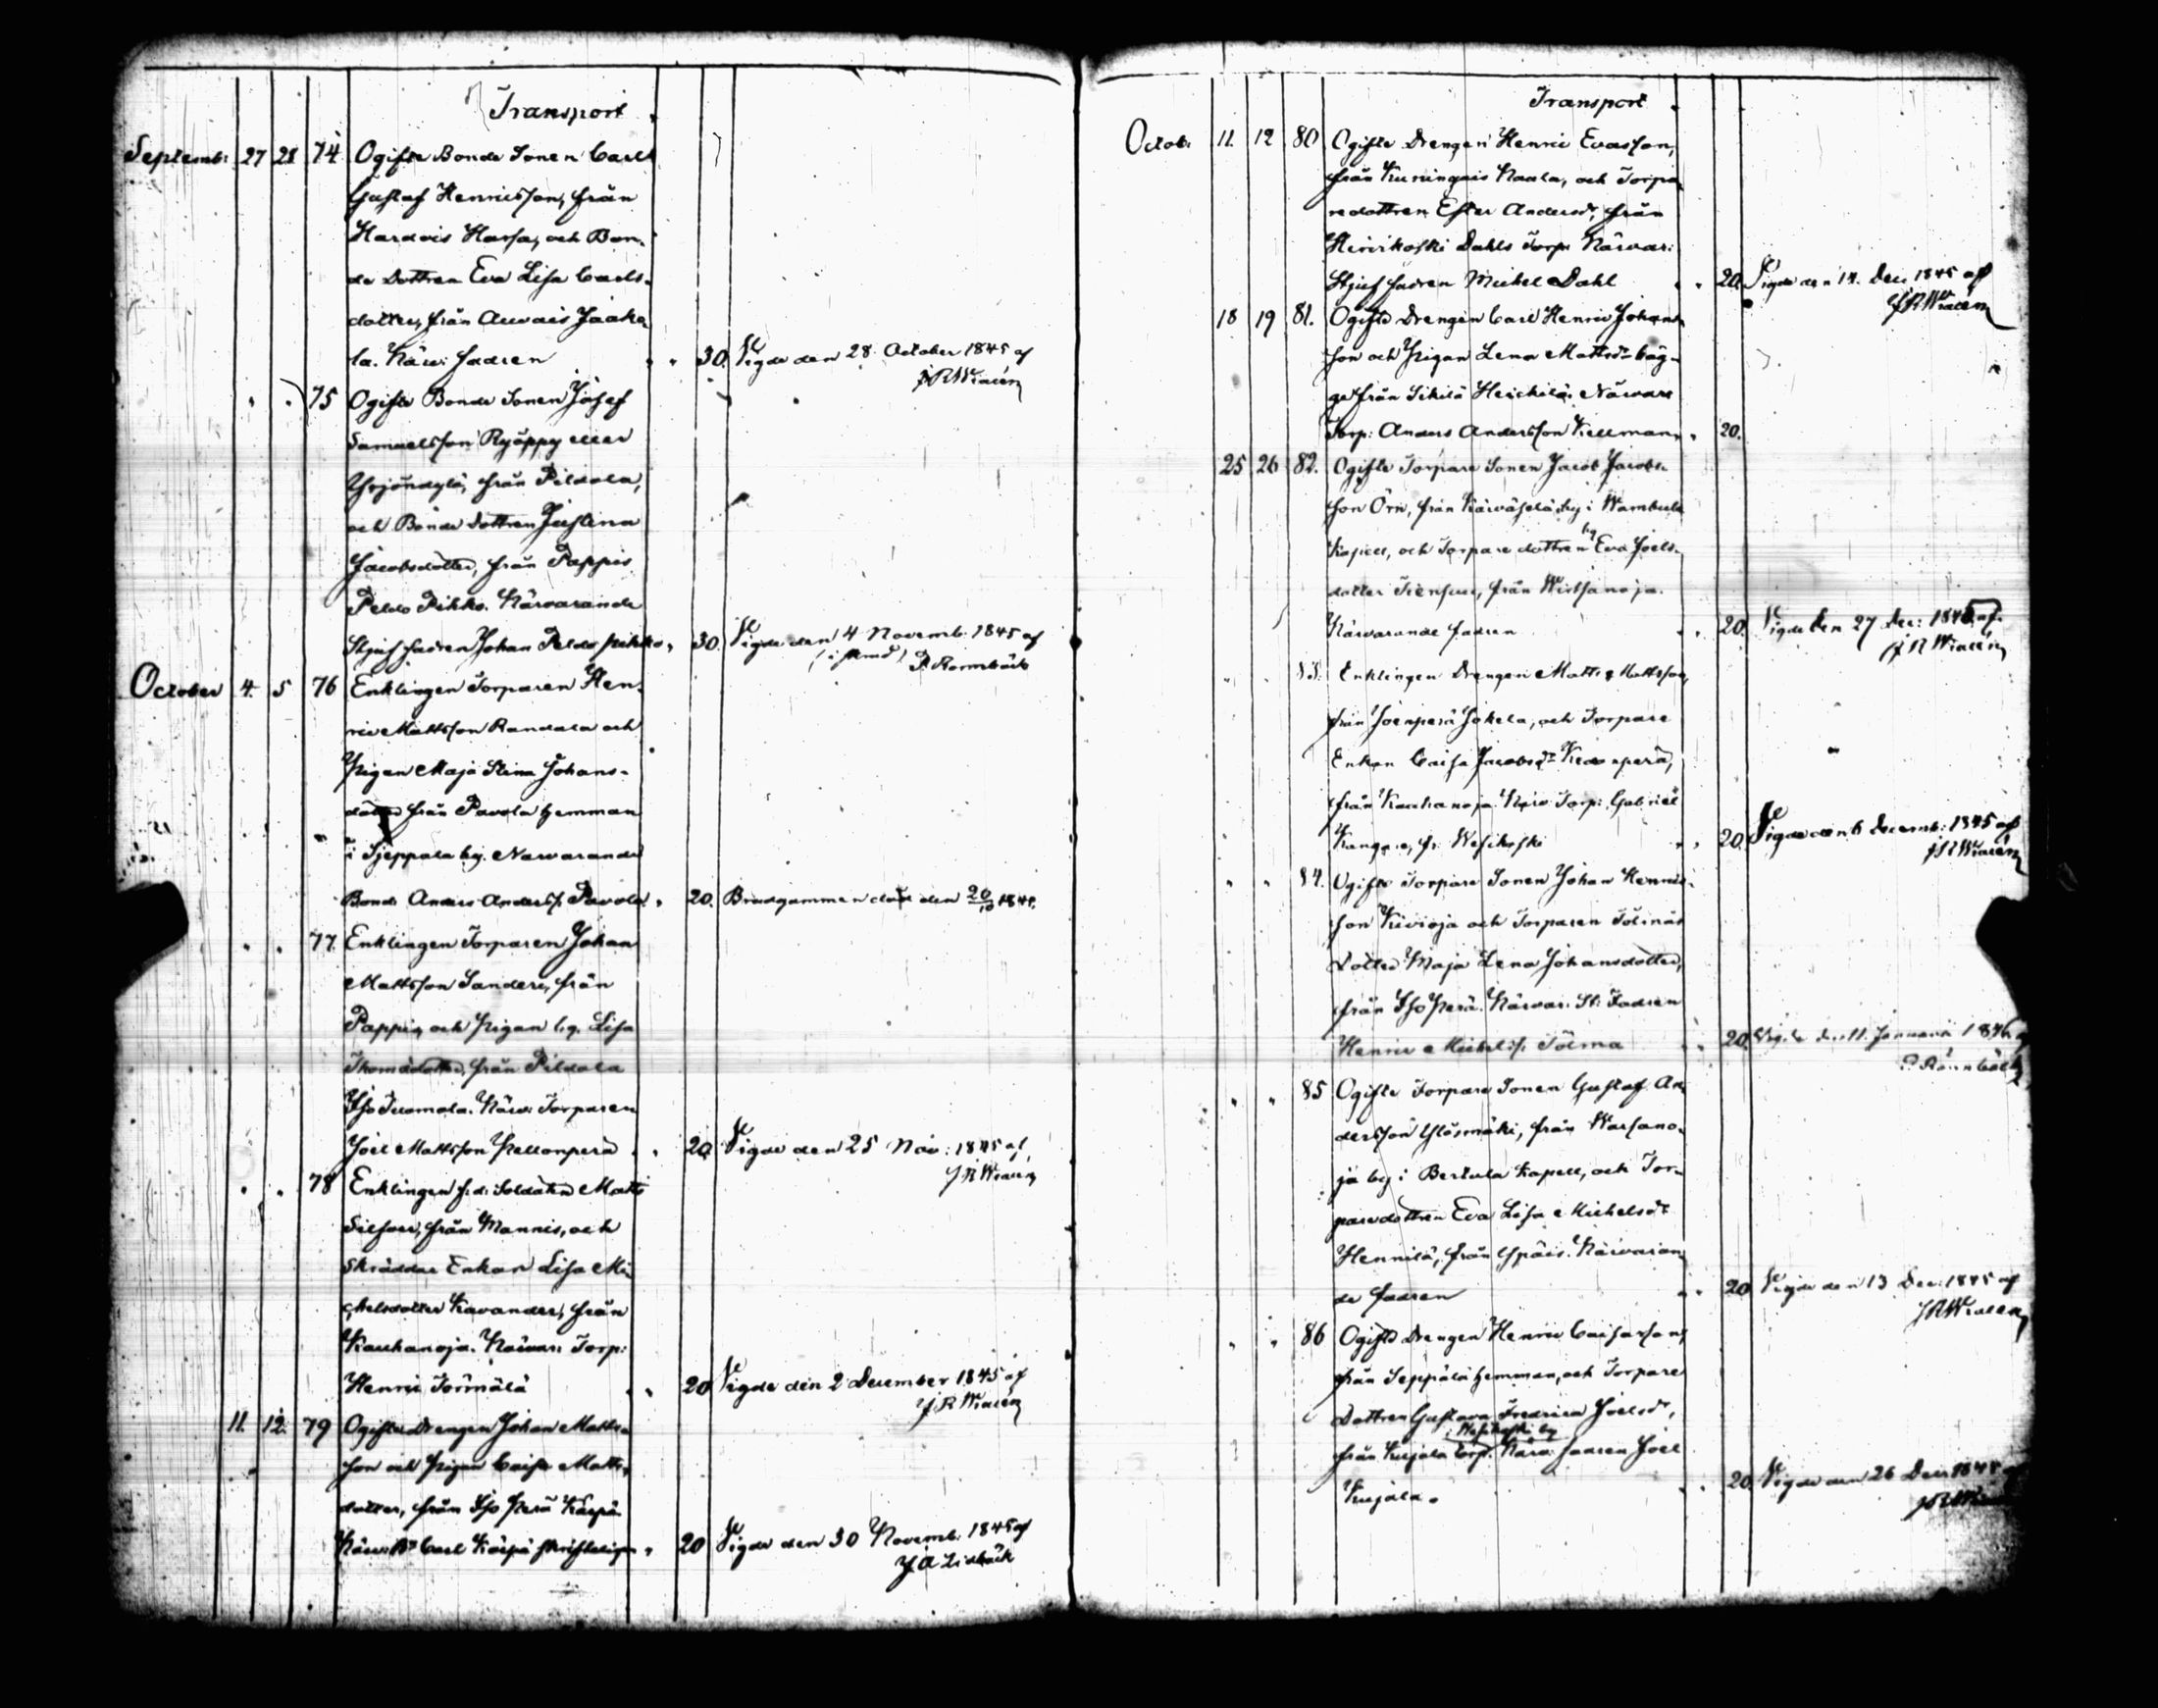 Transport
Septemb: 27 28 74 Ogifte Bonde Sonen Carl
Gustaf Henricsson, från
Hardois Harsa, och Bon-
de Dottren Eva Lisa Carls-
dotter, från Auvais Jaako
la. Närv: fadren " " 30. Vigde den 28 October 1845 af
JRWiralén
" " 75 Ogifte Bonde Sonen Josef
Samuelsson Ryöppy eller
Yrjöndylä, från Pildola,
och Bonde dottren Justina
Jacobsdotter, från Pappis
Peldo Pihko. Närvarande
Stjuf fadren Johan Peldo pihko " 30. Vigde den 4 Novemb. 1845 af
P Rornbäck
October 4. 5 76 Enklingen Torparen Hen-
ric Mattsson Randala och
Pigan Maja Stina Johans-
dotter från Pavola hemman
i Sjeppala by. Närvarande
Bond: Anders Anderss: Pavola " 20. Brudgummen död den 20/10 1845.
" " 77. Enklingen Torparen Johan
Mattsson Sanders, från
Pappis, och Pigan hq. Lisa
Thomasdotter, från Pildola
Iso Tuomola. Närv: Torparen
Joel Mattsson Peltonperä " " 20. Vigde den 25 Nov: 1845 af
JRWiralén
" " 78 Enklingen f.d. Soldaten Matts
Silfver, från Mannis, och
Skräddar Enkan Lisa Mi-
chelsdotter Kavander, från
Kauhanoja. Närvar: Torp:
Henric Tormälä " 20 Vigde den 2 December 1845 af
JRWiralén
11. 12. 79 Ogifte Drengen Johan Matts-
son och Pigan Caisa Matts-
dotter, från Iso Perä Kärpä
Närv: Bd Carl Kärpä skrifteligen " 20 Vigde den 30 Novemb. 1845 af
JA Lidbäck
Transport
Octob: 11. 12 80 Ogifte Drengen Henric Evasson,
från Kuningais Naala, och Torpa-
redottren Ester Andersdr, från
Hirvikoski Dahls Torp. Närvar:
Stjuf fadren Michel Dahl " 20. Vigde den 14. Dec 1845 af
JRWiralén
18 19 81. Ogifte Drengen Carl Henric Johans-
son och Pigan Lena Mattsdr bäg-
ge från Sikilä Heickilä. Närvar:
Torp: Anders Andersson Kellman " 20.
25 26 82. Ogifte Torpare Sonen Jacob Jacobs-
son Örn, från by i Wambula
Kapell, och Torpare dottren hq Eva Joels-
dotter från Wirtsanoja.
Närvarande fadren " 20. Vigde den 27 Dec: 1845 af
JRWiralén
" " 83. Enklingen Drengen Matts Mattsson,
från Joenperä Jokela, och Torpare
Enkan Caisa Jacobsdr
från Kauhanoja. Närv: Torp: Gabriel
Kangas, fr. Wesikoski " " 20. Vigde den 6 Decemb: 1845 af
JRWiralén
" " 84. Ogifte Torpare Sonen Johan Henrics-
son Kivioja och Torparen Tölmäs
Dotter Maja Lena Johansdotter,
från Iso Perä. Närvar: St: Fadren
Henric Michelss: Tölma " " 20. Vigde den 11. Januarii 1846 af
P Rornbäck
" " 85 Ogifte Torpare Sonen Gustaf An-
dersson Ylösmäki, från Karhano-
ja by i Bertula Kapell, och Tor-
paredottren Eva Lisa Michelsdr
Hennilä, från Ypäis. Närvaran-
de fadren " " 20 Vigde den 13 Dec: 1845 af
JRWiralén
" " 86 Ogifte Drengen Henric Caisasson,
från Seppälä hemman, och Torpare
Dottren Gustava Fredrica Joelsdr,
i Wesikoski by
från Kujala Torp. Närv: fadren Joel
Kujala. " " 20. Vigde den 26 Dec 1845 af
JRWiralén